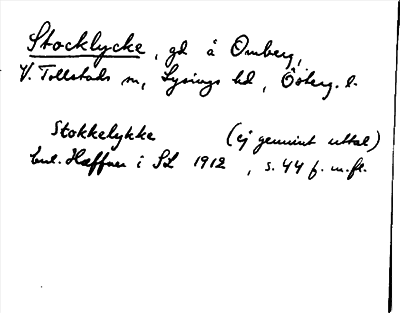 Stocklycke, gd å Omberg,
V. Tollstads sn, Lysings hd, Österg. l.
Stokkelykke (ej genuint uttal)
enl. Haffner i SL 1912, s. 44 f. m.fl.